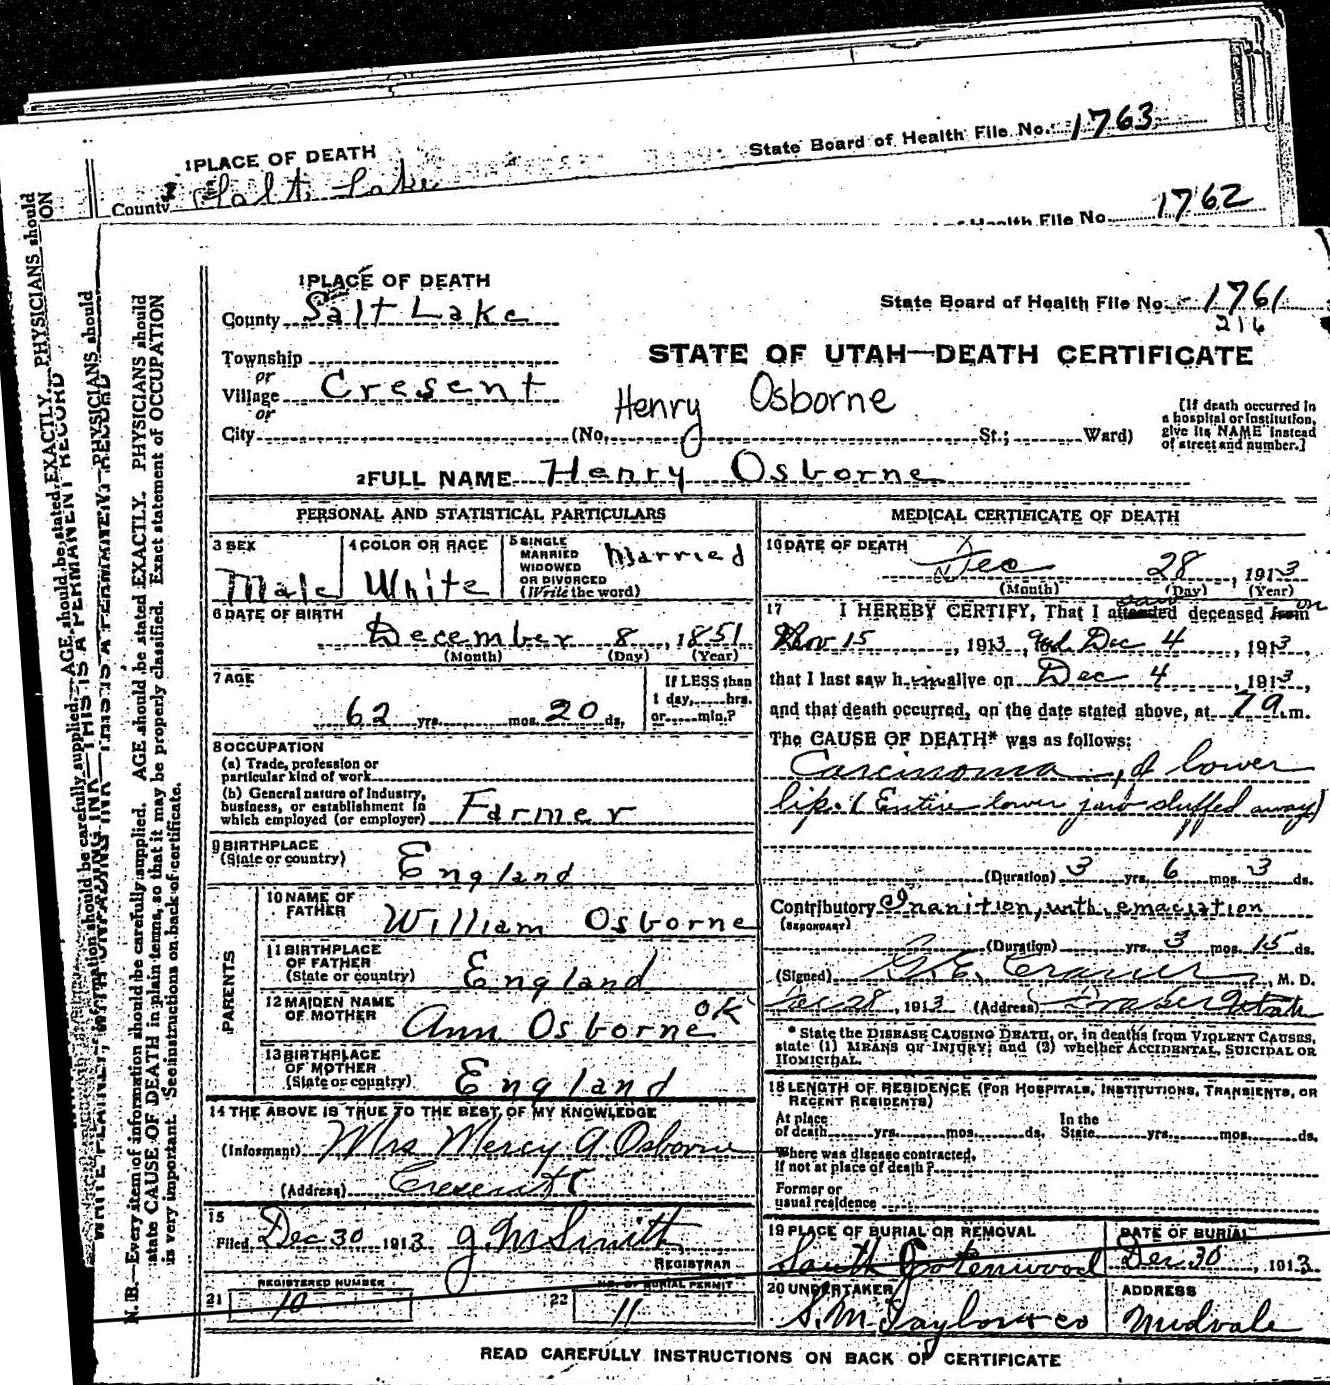 1 PLACE OF DEATH
State Board of Health File No. 1763
County Salt Lake
Health File No. 1762
1 PLACE OF DEATH
County Salt Lake
State Board of Health File No. 1761
216
Township
STATE OF UTAH—DEATH CERTIFICATE
or
Village Cresent
or
Henry Osborne
[If death occurred in
a hospital or institution,
give its NAME instead
of street and number.]
City (No. St.; Ward)
2 FULL NAME Henry Osborne
PERSONAL AND STATISTICAL PARTICULARS
3 SEX
Male
4 COLOR OR RACE
White
5 SINGLE
MARRIED
WIDOWED
OR DIVORCED
(Write the word)
Married
6 DATE OF BIRTH
December 8, 1851
(Month) (Day) (Year)
7 AGE
62 yrs. mos. 20 ds.
If LESS than
1 day, hrs.
or min.?
8 OCCUPATION
(a) Trade, profession or
particular kind of work
(b) General nature of industry,
business, or establishment in
which employed (or employer) Farmer
9 BIRTHPLACE
(State or country) England
PARENTS
10 NAME OF
FATHER William Osborne
11 BIRTHPLACE
OF FATHER
(State or country) England
12 MAIDEN NAME
OF MOTHER Ann Osborne OK
13 BIRTHPLACE
OF MOTHER
(State or country) England
14 THE ABOVE IS TRUE TO THE BEST OF MY KNOWLEDGE
(Informant) Mrs Mercy A. Osborne
(Address) Cresent
15
Filed Dec 30 1913 J. M Smith
REGISTRAR
REGISTERED NUMBER
21 10
NO. OF BURIAL PERMIT
22 11
MEDICAL CERTIFICATE OF DEATH
16 DATE OF DEATH
Dec 28, 1913
(Month) (Day) (Year)
17 I HEREBY CERTIFY, That I attended saw deceased from on
Nov 15, 1913, and Dec 4, 1913,
that I last saw him alive on Dec 4, 1913,
and that death occurred, on the date stated above, at 7 a.m.
The CAUSE OF DEATH* was as follows:
Carcinoma, of lower
lip. (Entire lower jaw sluffed away)
(Duration) 3 yrs. 6 mos. 3 ds.
Contributory Inanition, with emaciation
(SECONDARY)
(Duration) yrs. 3 mos. 15 ds.
(Signed) M. D.
Dec 28, 1913 (Address) Utah
* State the DISEASE CAUSING DEATH, or, in deaths from VIOLENT CAUSES,
state (1) MEANS OF INJURY; and (2) whether ACCIDENTAL, SUICIDAL OR
HOMICIDAL.
18 LENGTH OF RESIDENCE (FOR HOSPITALS, INSTITUTIONS, TRANSIENTS, OR
RECENT RESIDENTS)
At place
of death yrs. mos. ds.
In the
State yrs. mos. ds.
Where was disease contracted,
if not at place of death?
Former or
usual residence
19 PLACE OF BURIAL OR REMOVAL
South
DATE OF BURIAL
Dec 30, 1913
20 UNDERTAKER
S. M. Taylor & co
ADDRESS
Midvale
READ CAREFULLY INSTRUCTIONS ON BACK OF CERTIFICATE
N. B.—Every item of information should be carefully supplied. AGE should be stated EXACTLY. PHYSICIANS should
state CAUSE OF DEATH in plain terms, so that it may be properly classified. Exact statement of OCCUPATION
is very important. See instructions on back of certificate.